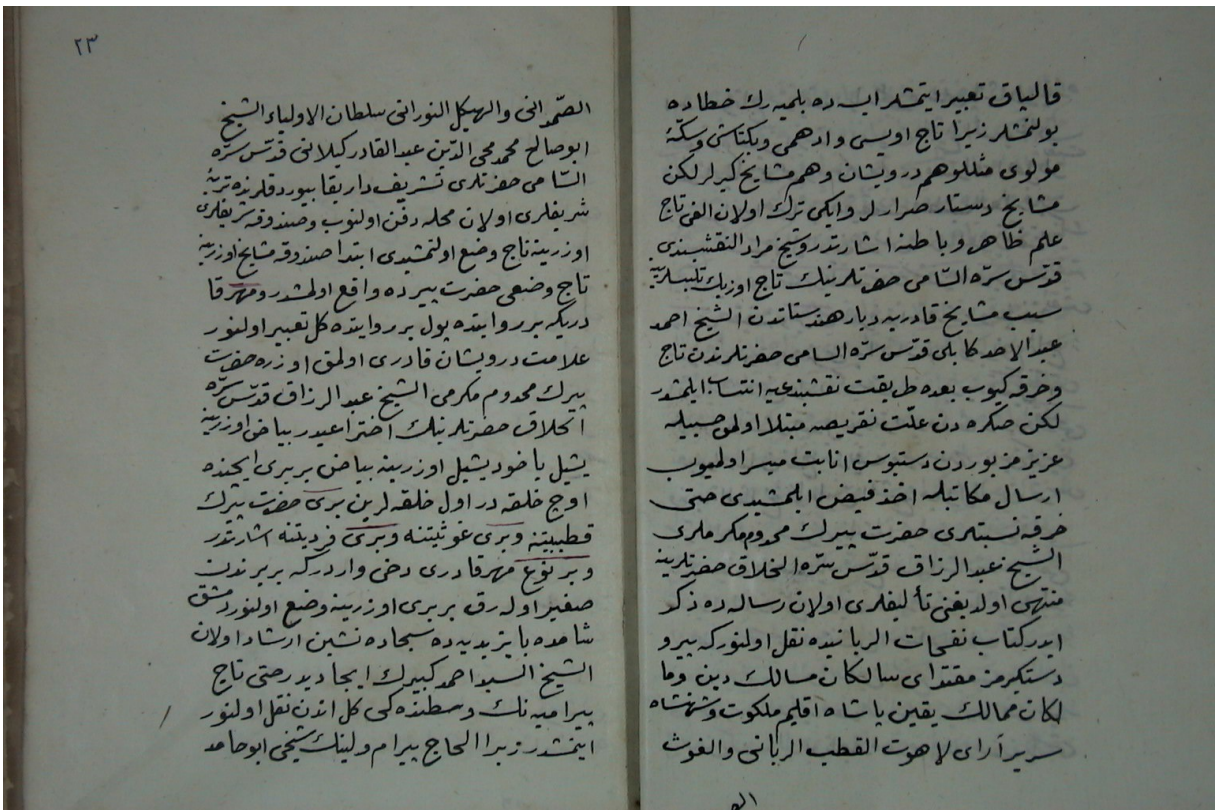 قالپاق تعبير ايتمشلر ايسه ده بلميه رك خطاده
بولنمشلر زيرا تاج اويسى وادهمى وبكتاشى وسكهٔ
مولوى مثللو هم درويشان وهم مشايخ كيرلر لكن
مشايخ دستار صرارلر وايكى ترك اولان الفى تاج
علم ظاهر وباطنه اشارتدر وشيخ مراد النقشبندى
قدّس سرّه السّامى حضرتلرينك تاج اوزبك تلبيسلرينه
سبب مشايخ قادريه ديار هندستاندن الشيخ احمد
عبد الاحد كابلى قدّس سرّه السامى حضرتلرندن تاج
وخرقه كيوب بعده طريقت نقشبنديه انتساب ايلمشدر
لكن صكره دن علّت نقريصه مبتلا اولمق حسبيله
عزيز مزبوردن دستبوس انابت ميسر اولميوب
ارسال مكاتبله اخذ فيض ايلمشيدى حتى
خرقه نسبتلرى حضرت پيرك مخدوم مكرملرى
الشيخ عبد الرزاق قدّس سرّه الخلاق حضرتلرينه
منتهى اولديغنى تأليفلرى اولان رساله ده ذكر
ايدر كتاب نفحات الربانيده نقل اولنوركه پير و
دستكيرمز مقتداى سالكان مسالك دين وما
لكان ممالك يقين پاشاه اقليم ملكوت وشهنشاه
سرير آراى لاهوت القطب الربانى والغوث
الصّ
٢٣
الصّمدانى والهيكل النورانى سلطان الاولياء الشيخ
ابو صالح محمد محى الدّين عبد القادر كيلانى قدّس سرّه
السّامى حضرتلرى تشريف دار بقا بيوردقلرنده تربهٔ
شريفلرى اولان محله دفن اولنوب وصندوقهٔ شريفلرى
اوزرينه تاج وضع اولنمشيدى ابتدا صندوقه مشايخ اوزرينه
تاج وضعى حضرت پيرده واقع اولمشدر ومهر قا
دريكه بر روايتده پول بر روايتده كل تعبير اولنور
علامت درويشان قادرى اولمق اوزره حضرت
پيرك مخدوم مكرمى الشيخ عبد الرزاق قدّس سرّه
الخلاق حضرتلرينك اختراعيدر بياض اوزرينه
يشيل ياخود يشيل اوزرينه بياض بربرى ايچنده
اوچ حلقه در اول حلقه لرين برى حضرت پيرك
قطبيتنه وبرى غوثيتنه وبرى فرديتنه اشارتدر
وبر نوع مهر قادرى دخى واردركه بربرندن
صغير اوله رق بربرى اوزرينه وضع اولنور دمشق
شامده بايزيديه ده سجاده نشين ارشاد اولان
الشيخ السيد احمد كبيرك ايجاديدر حتى تاج
پيراميه نك وسطنده كى كل اندن نقل اولنور
ايتمشدر زيرا الحاج پيرام ولينك شيخى ابو حامد